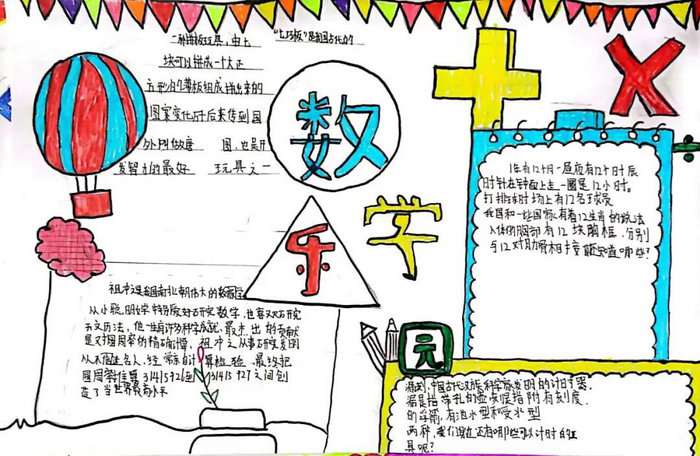 "七巧板"是我国古代的
一种拼板玩具,由七
块可以拼成一个大正
方形的薄板组成拼出来的
图案变化万千后来传到国
外叫做唐 图,也是开
发智力的最好 玩具之一
数
学
乐
园
1年有12个月一昼夜有12个时辰
时针在钟面上走一圈是12小时。
打排球时场上有12名球员
我国和一些国家有着12生肖的说法
人体的胸部有12块胸椎,分别
与12对肋骨相
祖冲之是我国南北朝伟大的数学
从小聪明好学特别爱好研究数学,也喜欢研究
天文历法,他一生有许多科学成就,最杰出的贡献
是对圆周率的精确推算。祖冲之从事研究
圆周率 3.1415926 3.1415927之间创
造了当世界最高水平
中国古代汉族科学家发明的计时器。
壶 指 有刻度
的 箭,有泄水型和受水型
两种,我们现在还有哪些可以计时的工
具呢?